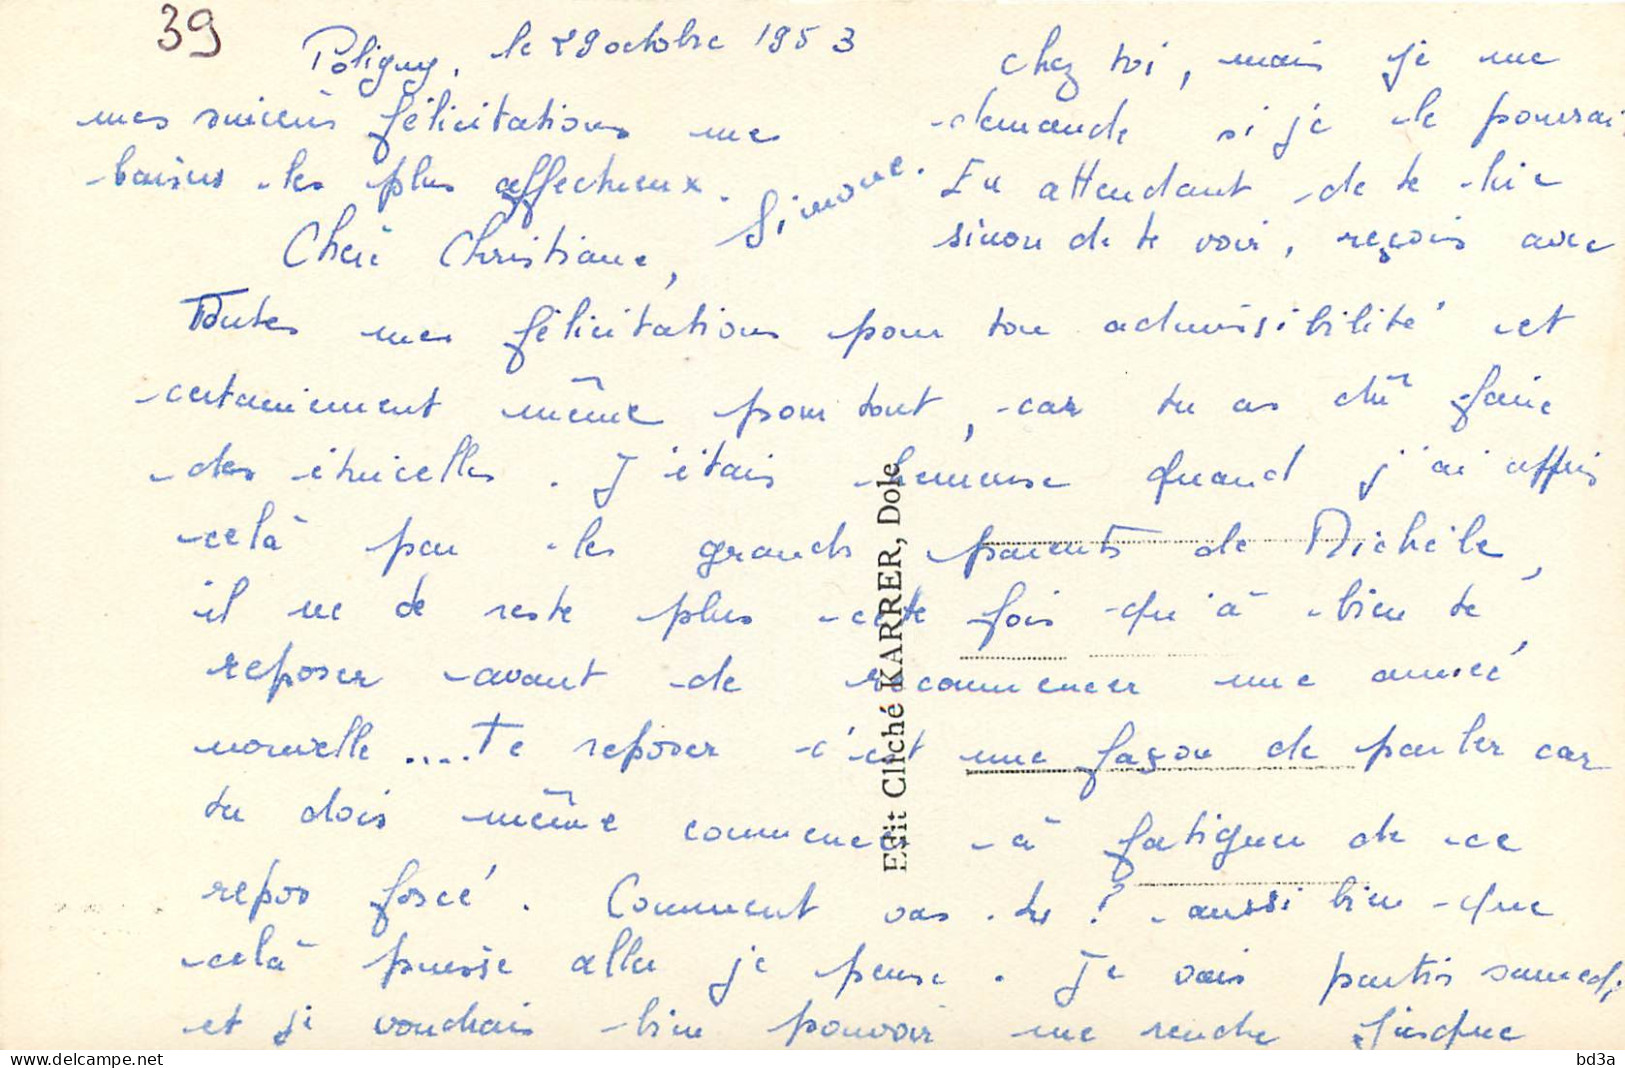 39
Poligny, le 29 octobre 1953
Chère Christiane,
Toutes mes félicitations pour ton admissibilité et
certainement même pour tout, car tu as dû faire
des étincelles. J'étais heureuse quand j'ai appris
celà par les grands parents de Michèle,
il ne te reste plus cette fois qu'à bien te
reposer avant de recommencer une année
nouvelle .... Te reposer c'est une façon de parler car
tu dois même commencer à fatiguer de ce
repos forcé. Comment vas-tu ? aussi bien que
celà puisse aller je pense. Je vais partir samedi
et je voudrais bien pouvoir me rendre jusque
chez toi, mais je me
demande si je le pourrai.
En attendant de te lire
sinon de te voir, reçois avec
mes sincères félicitations mes
baisers les plus affectueux.
Simone.
Edit Cliché KARRER, Dole
bd3a